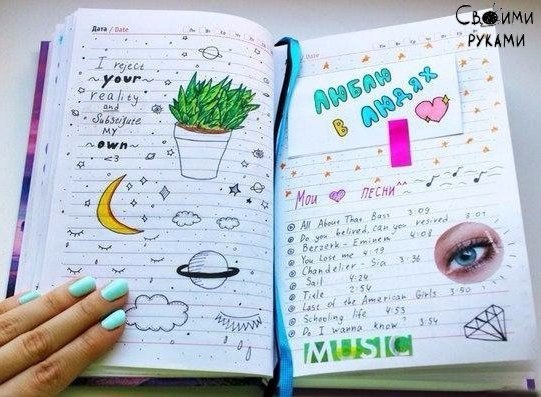 Своими
руками
Дата / Date
Пн Вт Ср Чт Пт Сб Вс
I reject
~your~
reality
and
Substitute
MY
~own~
<3
/ Date
ЛЮБЛЮ
В ЛЮДЯХ
Мои ПЕСНИ^^
All About That Bass 3:09
Do you belived, can you resived 3:01
Berzerk - Eminem 4:08
You lose me 4:19
Chandelier - Sia 3:36
Sail 4:24
Title 2:54
Last of the American Girls 3:50
Schooling life 4:53
Do I wanna know? 3:54
MUSIC